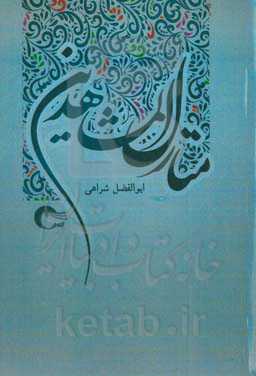 منازل المشاهدین
ابوالفضل شراهی
خانه کتاب و ادبیات ایران
ketab.ir